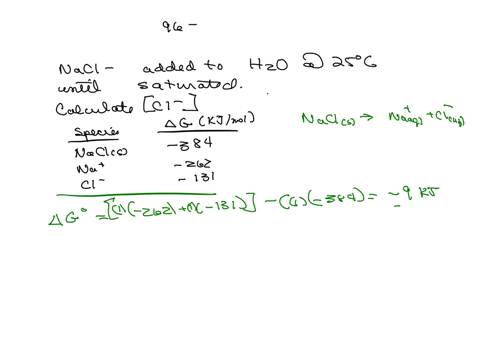 96 -
NaCl - added to H2O @ 25°C
until saturated.
Calculate [Cl-]
NaCl(s) → Na+(aq) + Cl-(aq)
Species ΔG (KJ/mol)
NaCl(s) -384
Na+ -262
Cl- -131
ΔG° = [(1)(-262) + (1)(-131)] - (1)(-384) = -9 KJ